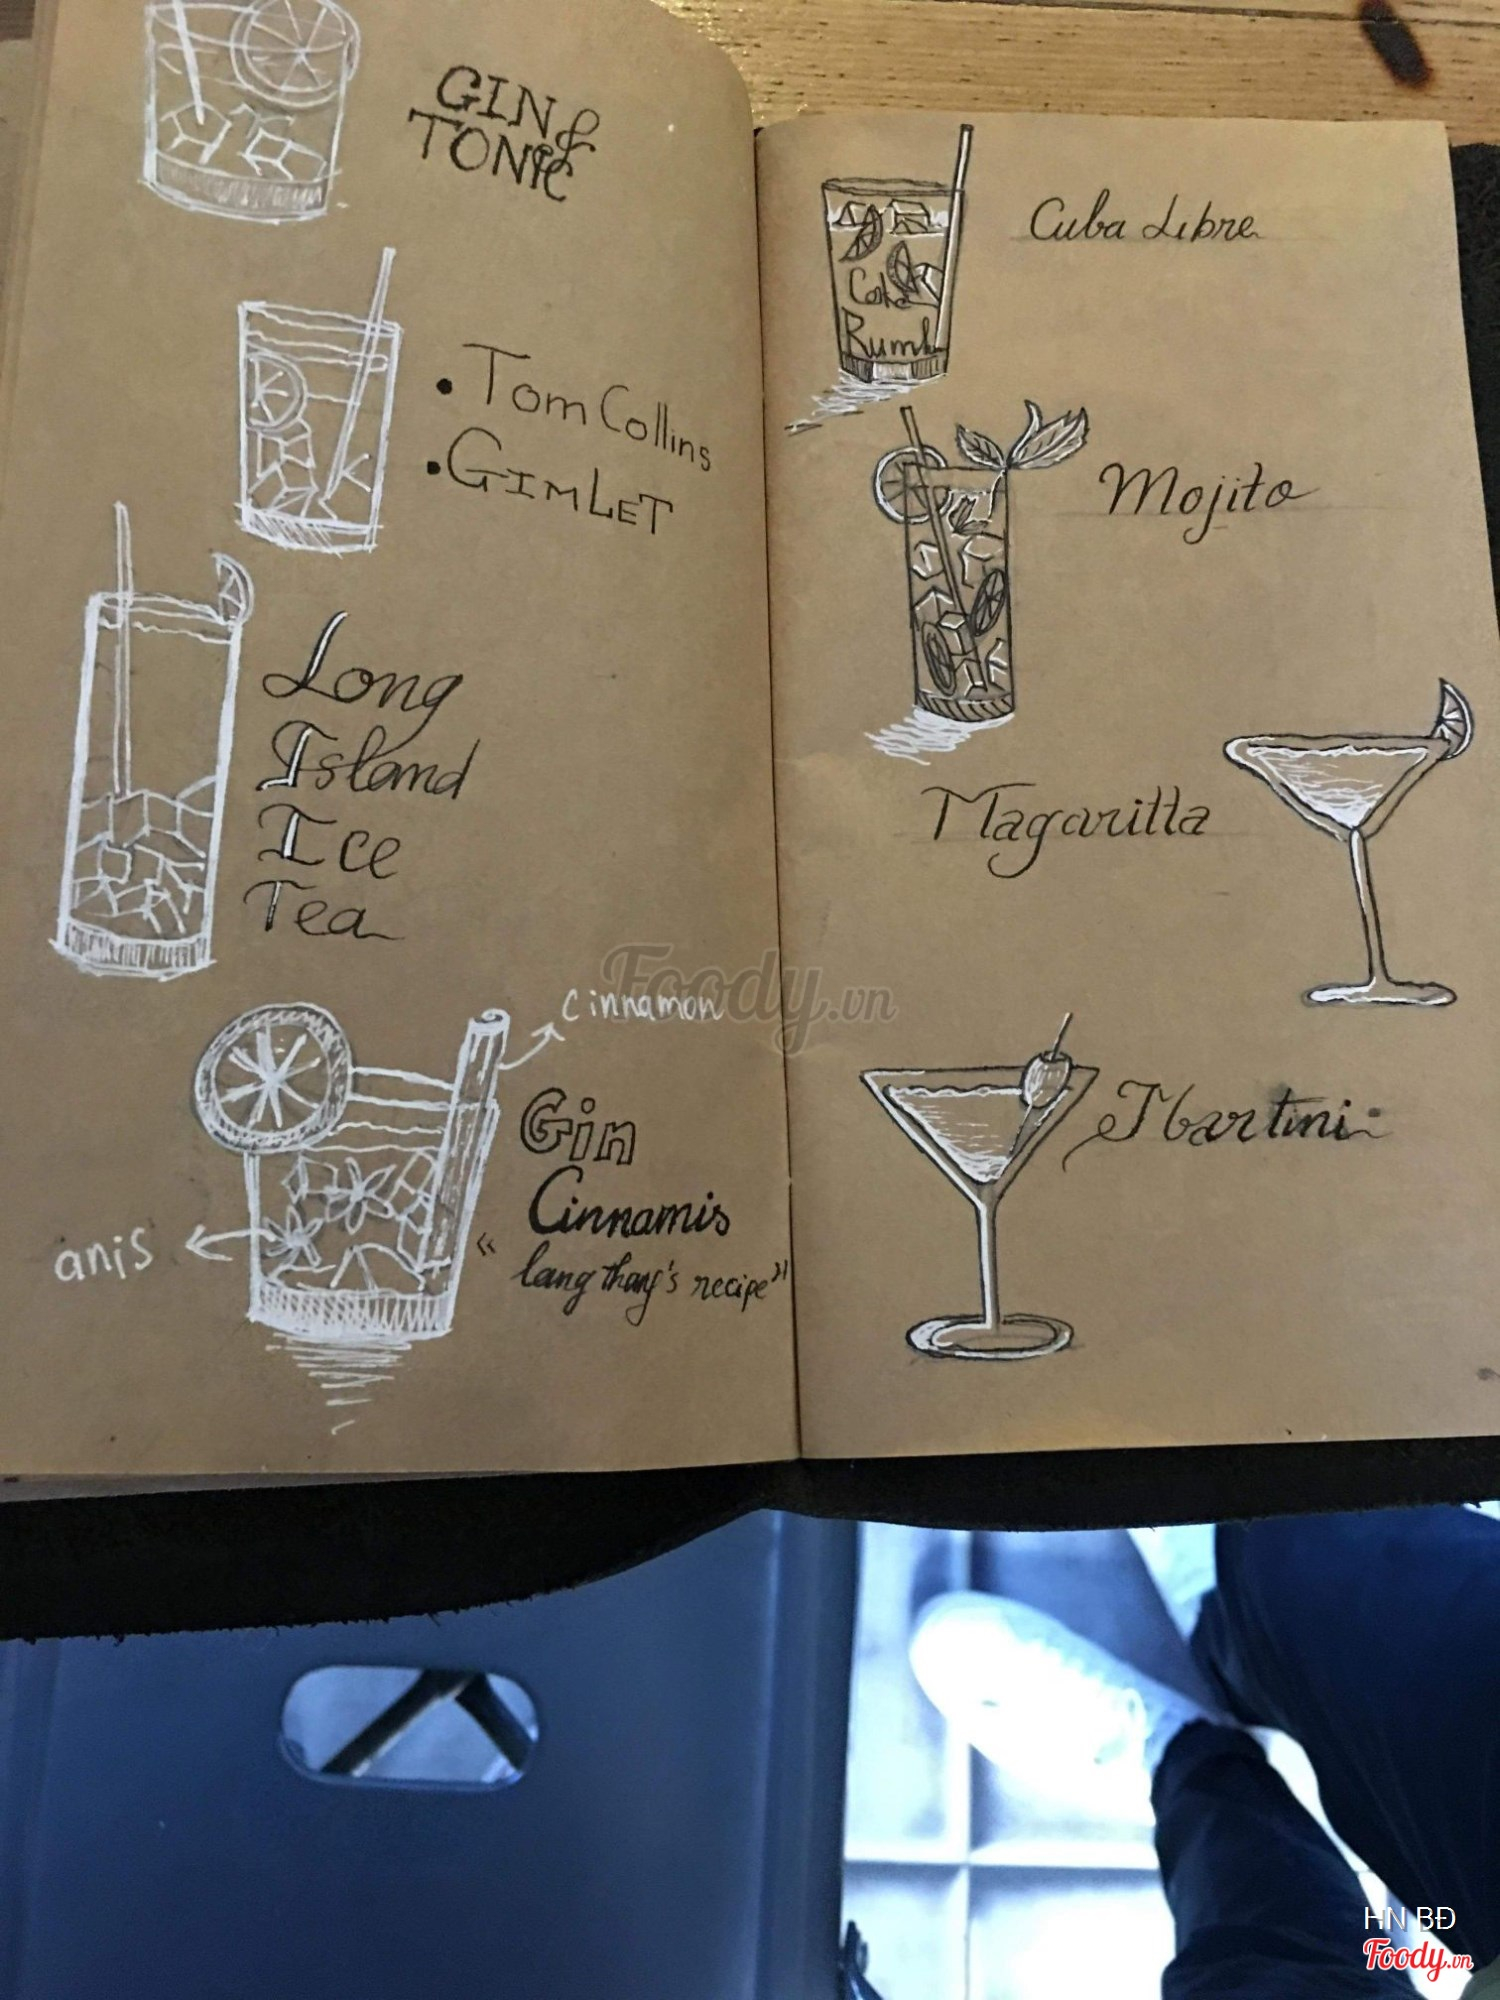 GIN &
TONIC
• Tom Collins
• GIMLET
Long
Island
Ice
Tea
cinnamon
Gin
Cinnamis
"lang thang's recipe"
anis
Cuba Libre
Coke
Rum
Mojito
Magaritta
Martini
Foody.vn
HN BĐ
Foody.vn